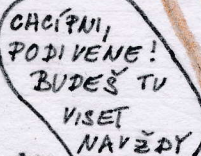 CHCÍPNI,
PODIVENE!
BUDEŠ TU
VISET
NAVŽDY